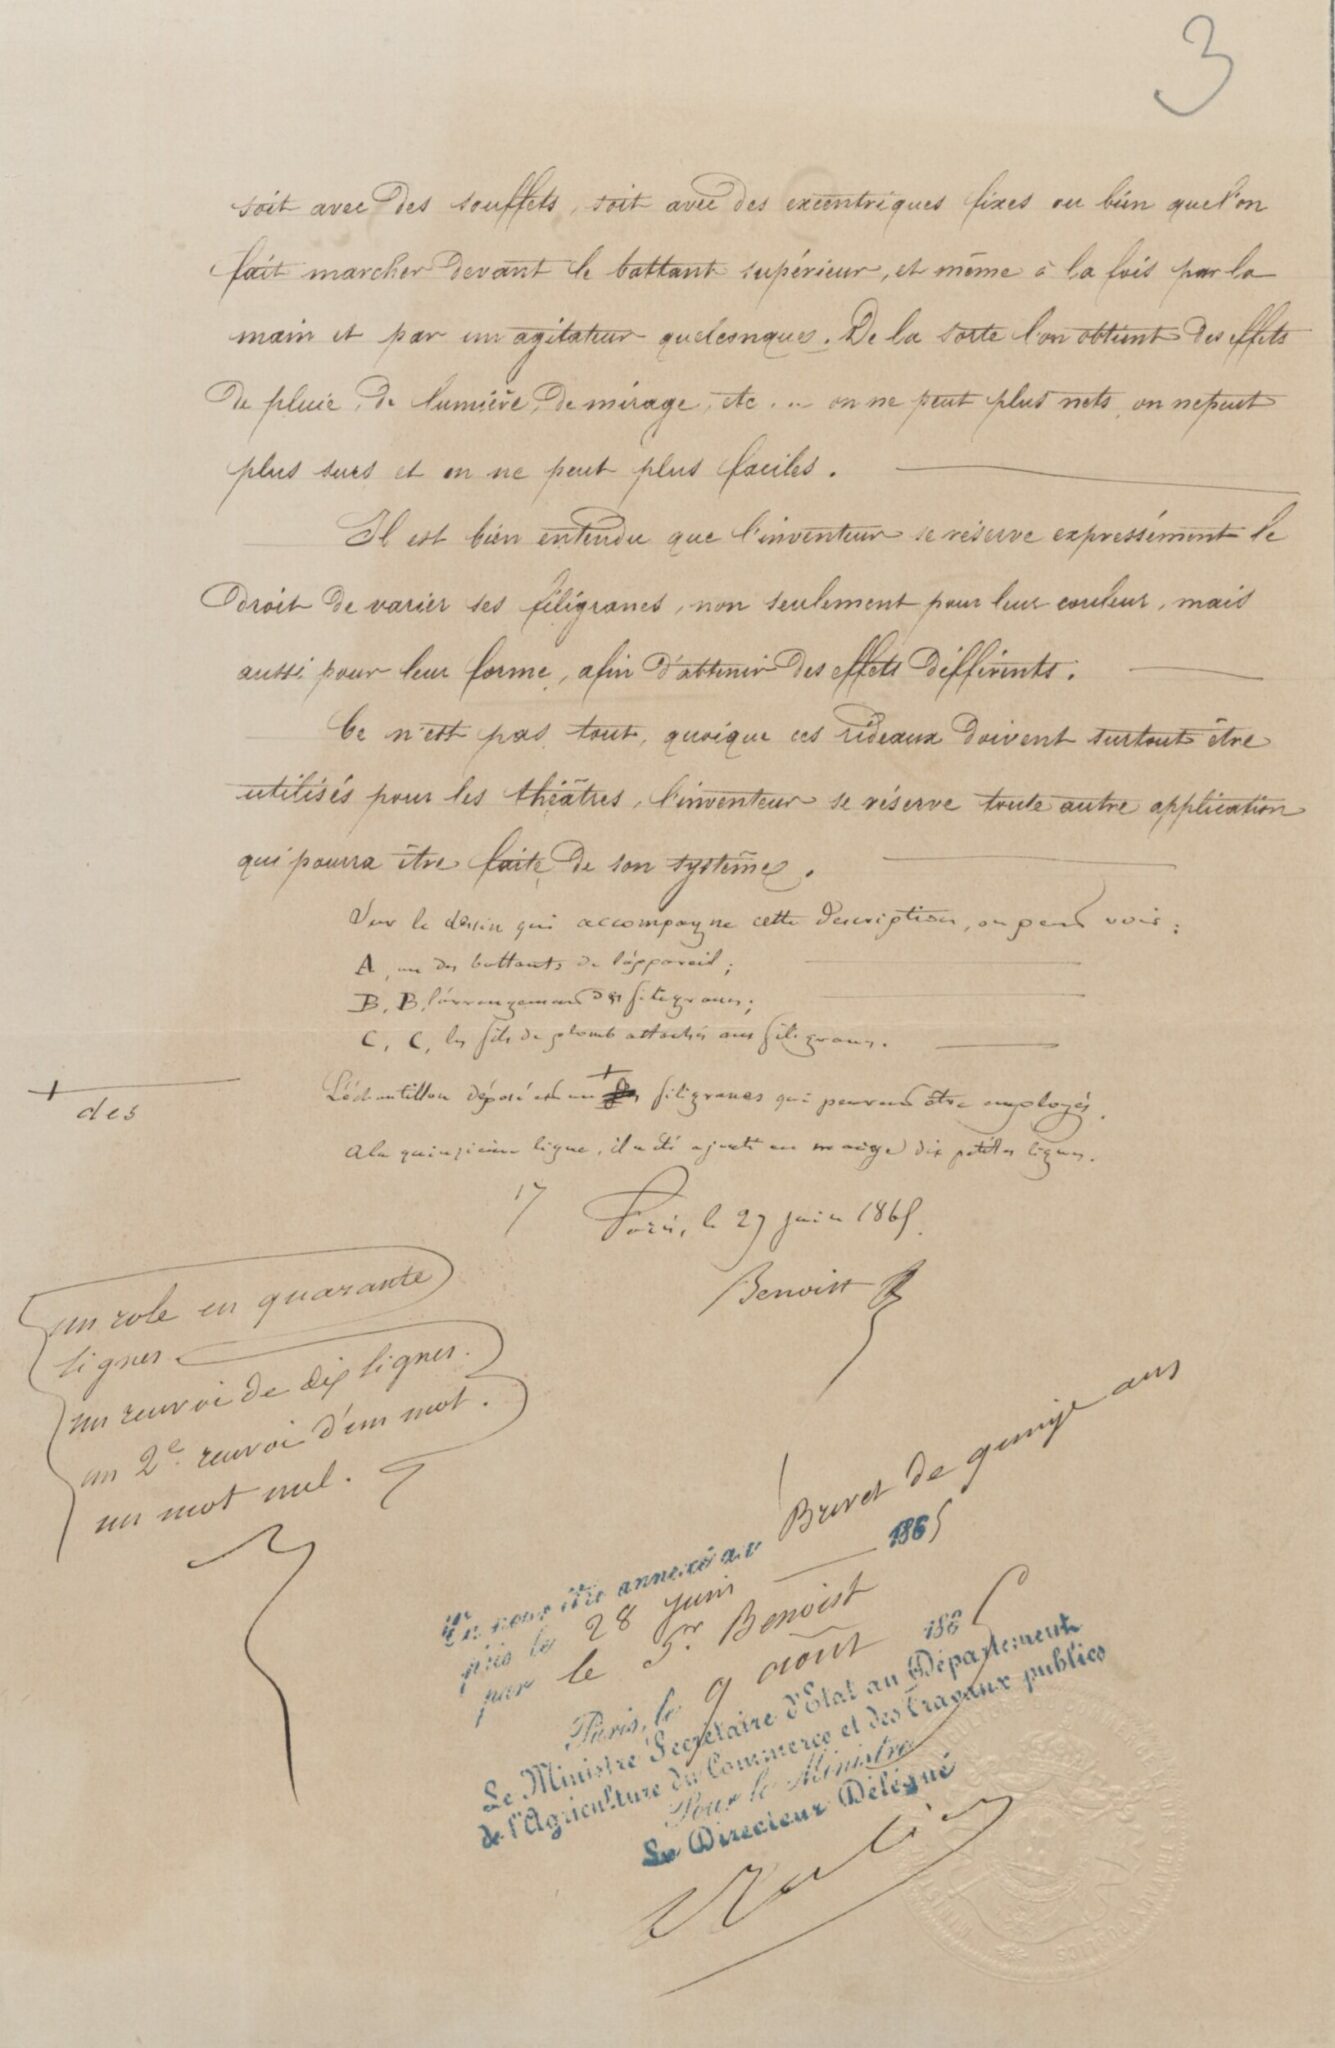 3
soit avec des soufflets, soit avec des excentriques fixes ou bien que l'on
fait marcher devant le battant supérieur, et même à la fois par la
main et par un agitateur quelconques. De la sorte l'on obtient des effets
de pluie, de lumière, de mirage, etc... on ne peut plus nets, on ne peut
plus surs et on ne peut plus faciles.
Il est bien entendu que l'inventeur se réserve expressément le
droit de varier ses filigranes, non seulement pour leur couleur, mais
aussi pour leur forme, afin d'obtenir des effets différents.
Ce n'est pas tout, quoique ces rideaux doivent surtout être
utilisés pour les théâtres, l'inventeur se réserve toute autre application
qui pourra être faite de son système.
Sur le dessin qui accompagne cette description, on peut voir:
A, un des battants de l'appareil;
B, B, l'arrangement des filigranes;
C, C, les fils de plomb attachés aux filigranes.
L'échantillon déposé est un + filigranes qui peuvent être employés.
+
des
A la quinzième ligne, il a été ajouté en marge dix petites lignes.
Paris, le 27 juin 1865.
Benoist
un role en quarante
lignes.
un renvoi de dix lignes.
un 2e renvoi d'un mot.
un mot nul.
Vu pour être annexé au Brevet de quinze ans
pris le 28 juin 1865
par le Sr Benoist
Paris, le 9 août 1865
Le Ministre Secrétaire d'Etat au Département
de l'Agriculture du Commerce et des Travaux publics
Pour le Ministre
Le Directeur Délégué